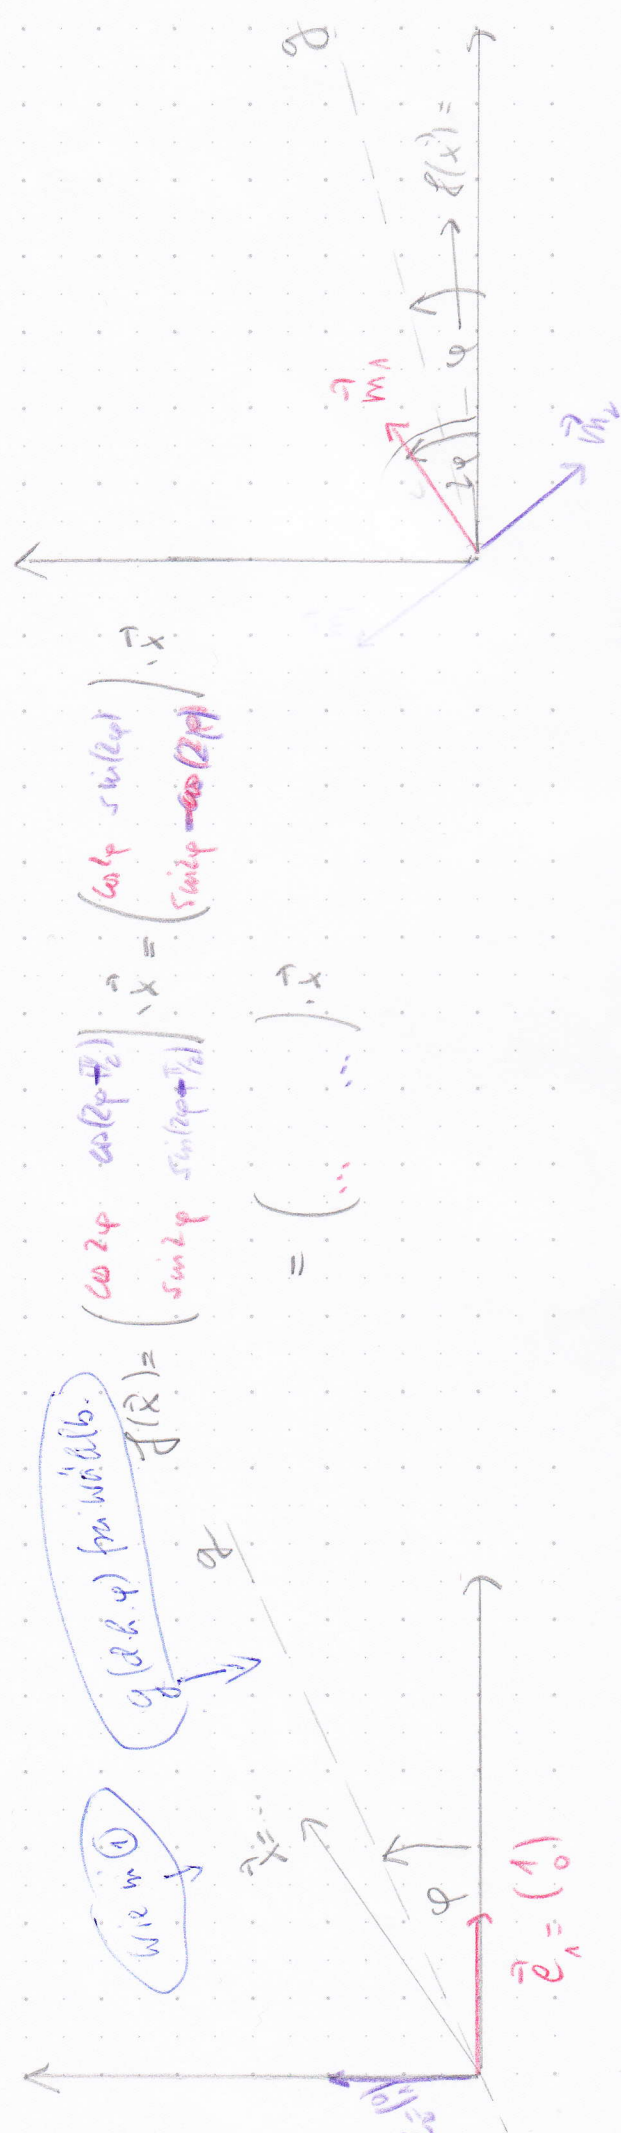 wie in ①
g (d.h. φ) frei wählb.
x⃗ = ...
g
φ
e⃗₁ = (1 0)
f(x⃗) = (cos2φ cos(2φ-π/2) sin2φ sin(2φ-π/2)) · x⃗ = (cos2φ sin(2φ) sin2φ -cos(2φ)) · x⃗
= (... ...) · x⃗
g
m⃗₁
2φ
φ
f(x⃗) =
m⃗₂